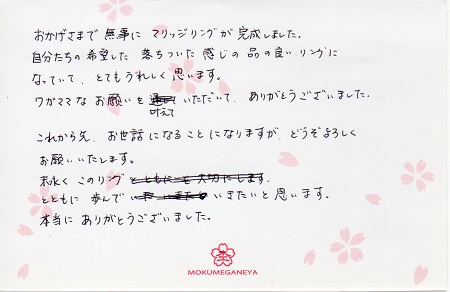 おかげさまで無事にマリッジリングが完成しました。
自分たちの希望した落ちついた感じの品の良いリングに
なっていて、とてもうれしく思います。
ワガママなお願いを叶えていただいて、ありがとうございました。
これから先、お世話になることになりますが、どうぞよろしく
お願いいたします。
末永くこのリング
とともに歩んでいきたいと思います。
本当にありがとうございました。
MOKUMEGANEYA